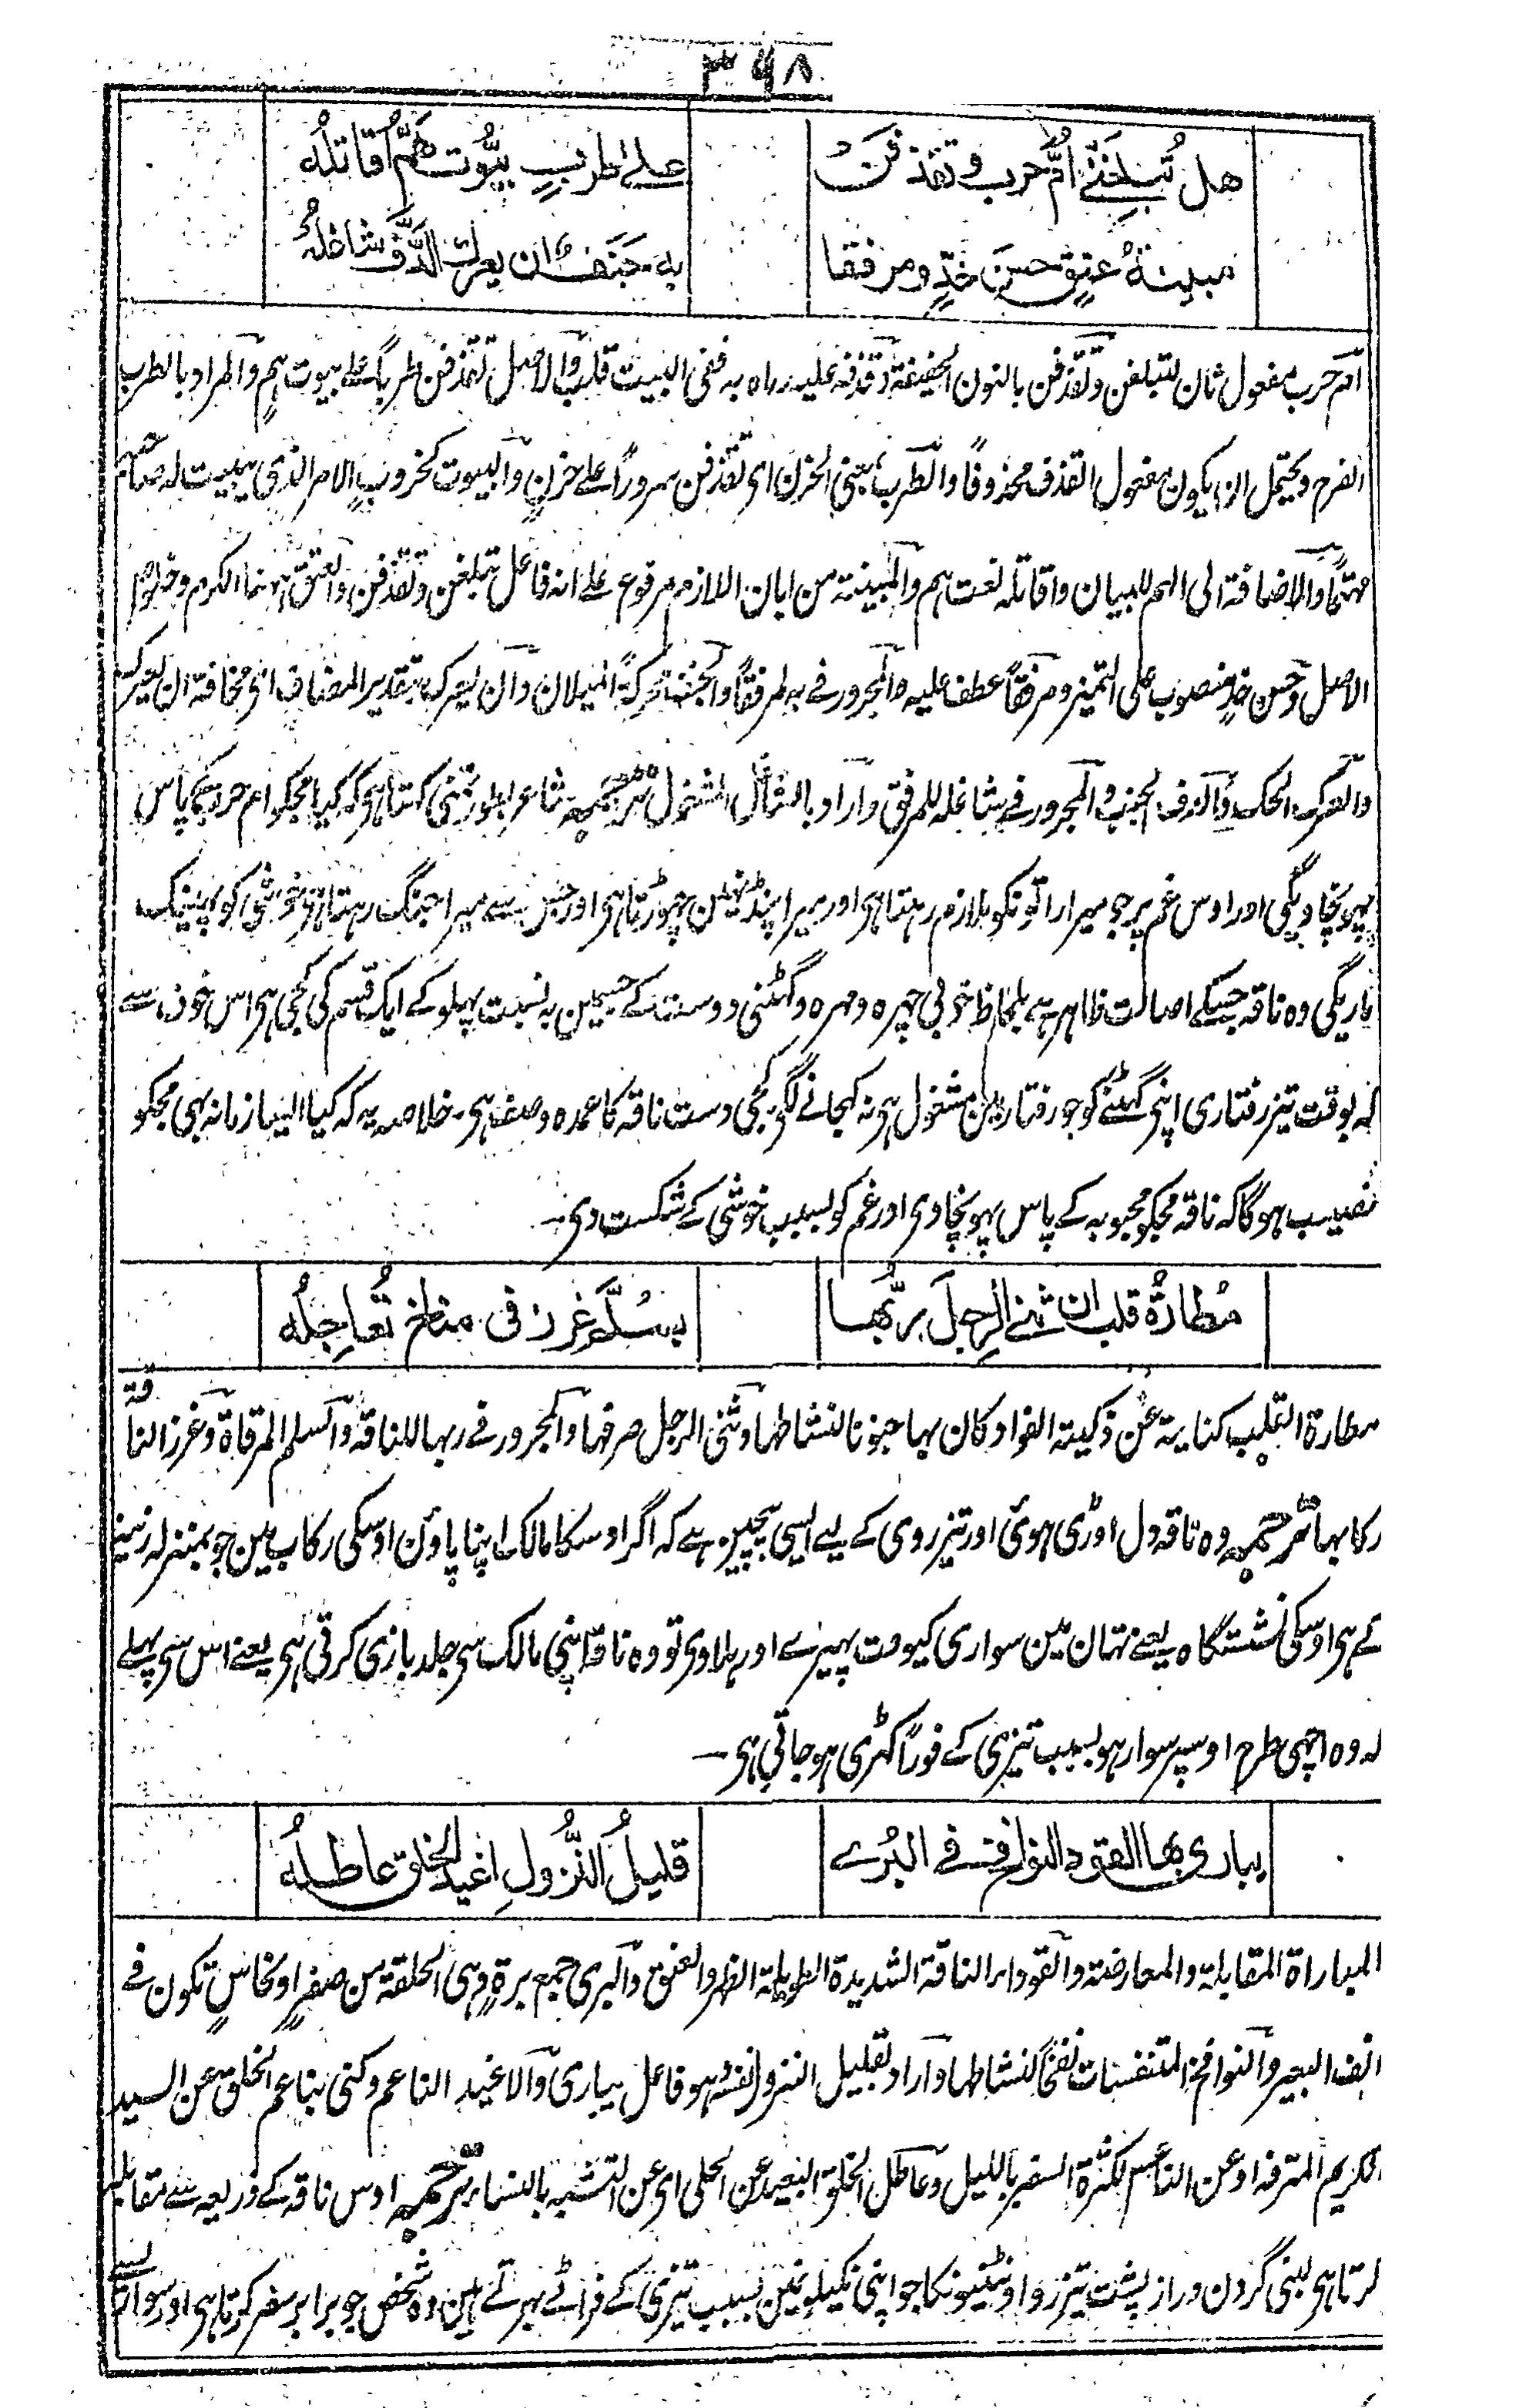 ۳۶۸
هل تُبلِغَنّی اُمَّ حرب وتقذفنَ علیٰ طربٍ بیّوت همٍّ اُقاتلُه
مبینةُ عتقٍ حسنَ خدٍّ ومرفقا به جنفٌ ان یعرك الدَّفَّ شاغلُه
ام حرب مفعول ثان لتبلغن وتقذفن بالنون الخفیفة وقذفه علیه رماه به ففی البیت قلب والاصل تقذفن طرباً علے بیوت ہم والمراد بالطرب
الفرح ویحتمل ان یکون مفعول القذف محذوفًا والطرب بمعنی الحزن ای تقذفن سروراً علے حزنٍ والبیوت کخروبٍ الامر الذی یبیت له صاحبه
مهتمًا والاضافة الی الہم للبیان واقاتله نعت ہم والمبینة من ابان اللازم مرفوع علے انه فاعل تبلغن وتقذفن والعتق ہہنا الکرم وخلوص
الاصل وحسن خدٍ منصوب علی التمیز ومرفقاً عطف علیه والمجرور فے به لمرفقاً والجنف محرکةً المیلان وان یعرک بتقدیر المضاف ای مخافة ان یعرک
والعرک الحک والدف الجنب والمجرور فے شاغله للمرفق واراد بالشاغل المشغول ترجمہ شاعر بطور تمنی کہتا ہی کہ کیا مجکو ام حرب کے پاس
پہونچاویگی اور اوس غم پر جو میرا راتونکو ملازم رہتا ہی اور میرا پنڈ نہین چہوڑتا ہی اور جس سے میرا جنگ رہتا ہی خوشی کو پہینک
ماریگی وہ ناقہ جسکے اصالت ظاہر ہے بلحاظ خوبی چہرہ ومہرہ وگہٹنی ودست کے جسمین بہ نسبت پہلو کے ایک قسم کی کجی ہی اس خوف سے
کہ بوقت تیز رفتاری اپنی گہٹنے کو جو رفتار مین مشغول ہی نہ کہجانے لگے کجی دست ناقہ کا عمدہ وصف ہی۔ خلاصہ یہ کہ کیا ایسا زمانہ بہی مجکو
نصیب ہوگا کہ ناقہ مجکو محبوبہ کے پاس پہونچادی اور غم کو بسبب خوشی کے شکست دی۔
مُطارَةُ قلبٍ ان ثنی الرِجلَ ربُّها بسُلَّمِ غرز فی مناخ تُعاجِلُه
مطارة القلب کنایة عن ذکیة الفواد کان بہا جنونا لنشاطہا وثنی الرجل صرفہا والمجرور فے ربہا للناقہ والسلم المرقاة وغرز الناقة
رکابہا ترجمہ وہ ناقہ دل اوڑی ہوئی اور تیز روی کے لیے ایسی بیچین ہے کہ اگر اوسکا مالک اپنا پاؤن اوسکی رکاب مین جو بمنزلہ زینہ
کے ہی اوسکی نشستگاہ یعنے تہان مین سواری کیوقت پہیرے اور ہلاوی تو وہ ناقہ اپنی مالک سی جلد بازی کرتی ہی یعنے اس سی پہلے
کہ وہ اچہی طرح اوسپر سوار ہو بسبب تیزی کے فوراً کہڑی ہو جاتی ہی۔
یباری بها القود النوافخ فی البُرے قلیلُ النُّزولِ اغیدُ الخلق عاطلُه
المباراة المقابلة والمعارضة والقوداء الناقة الشدیدة الطویلة الظہر والعنق والبری جمع برةٍ وہی الحلقة من صفرٍ او نحاسٍ تکون فے
انف البعیر والنوافخ المتنفسات نفخاً لنشاطہا واراد بقلیل النزول نفسه وہو فاعل یباری والاغید الناعم وکنی بناعم الخلق عن السید
الکریم المترفه او عن الناعس لکثرة السفر باللیل وعاطل الخلق البعید عن الحلی ای عن التشبه بالنساء ترجمہ اوس ناقہ کے ذریعہ سے مقابلہ
کرتا ہی لمبی گردن دراز پشت تیز رو اونٹنیونکا جو اپنی نکیلونمین بسبب تیزی کے فراٹے بہرتے ہین وہ شخص جو برابر سفر کرتا ہی اور سواری سے